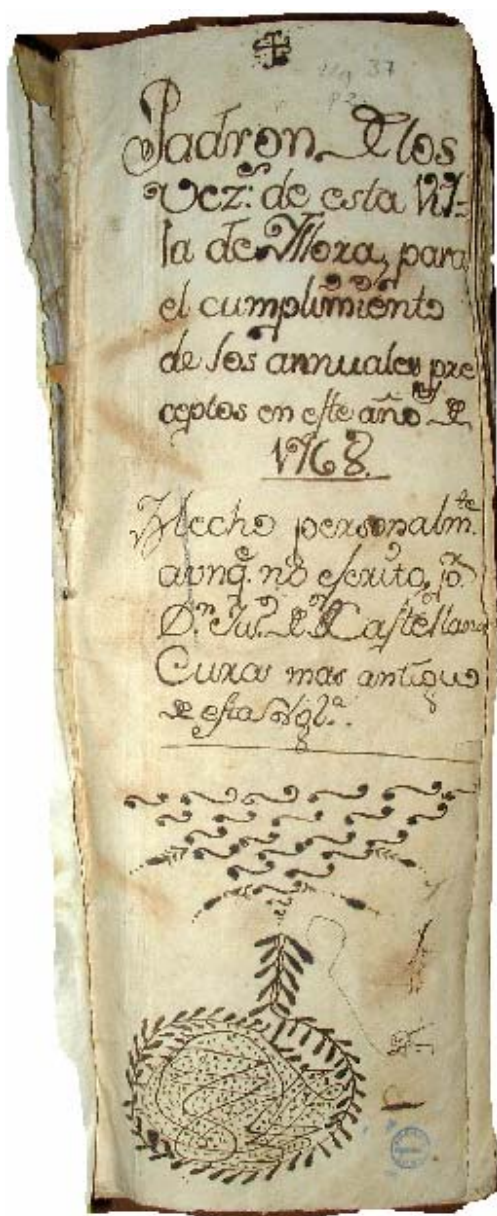 37
Padron de los
Vez.os de esta Vil=
la de Yllora, para
el cumplimiento
de los annuales pre
ceptos en este año de
1768.
Hecho personalm.te
avnq.e no escrito, p.r
D.n Ju.o de Castellano
Cura mas antiguo
de esta Ygl.a